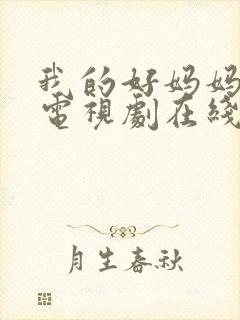 我的好妈妈
電視劇在綫
月生春秋